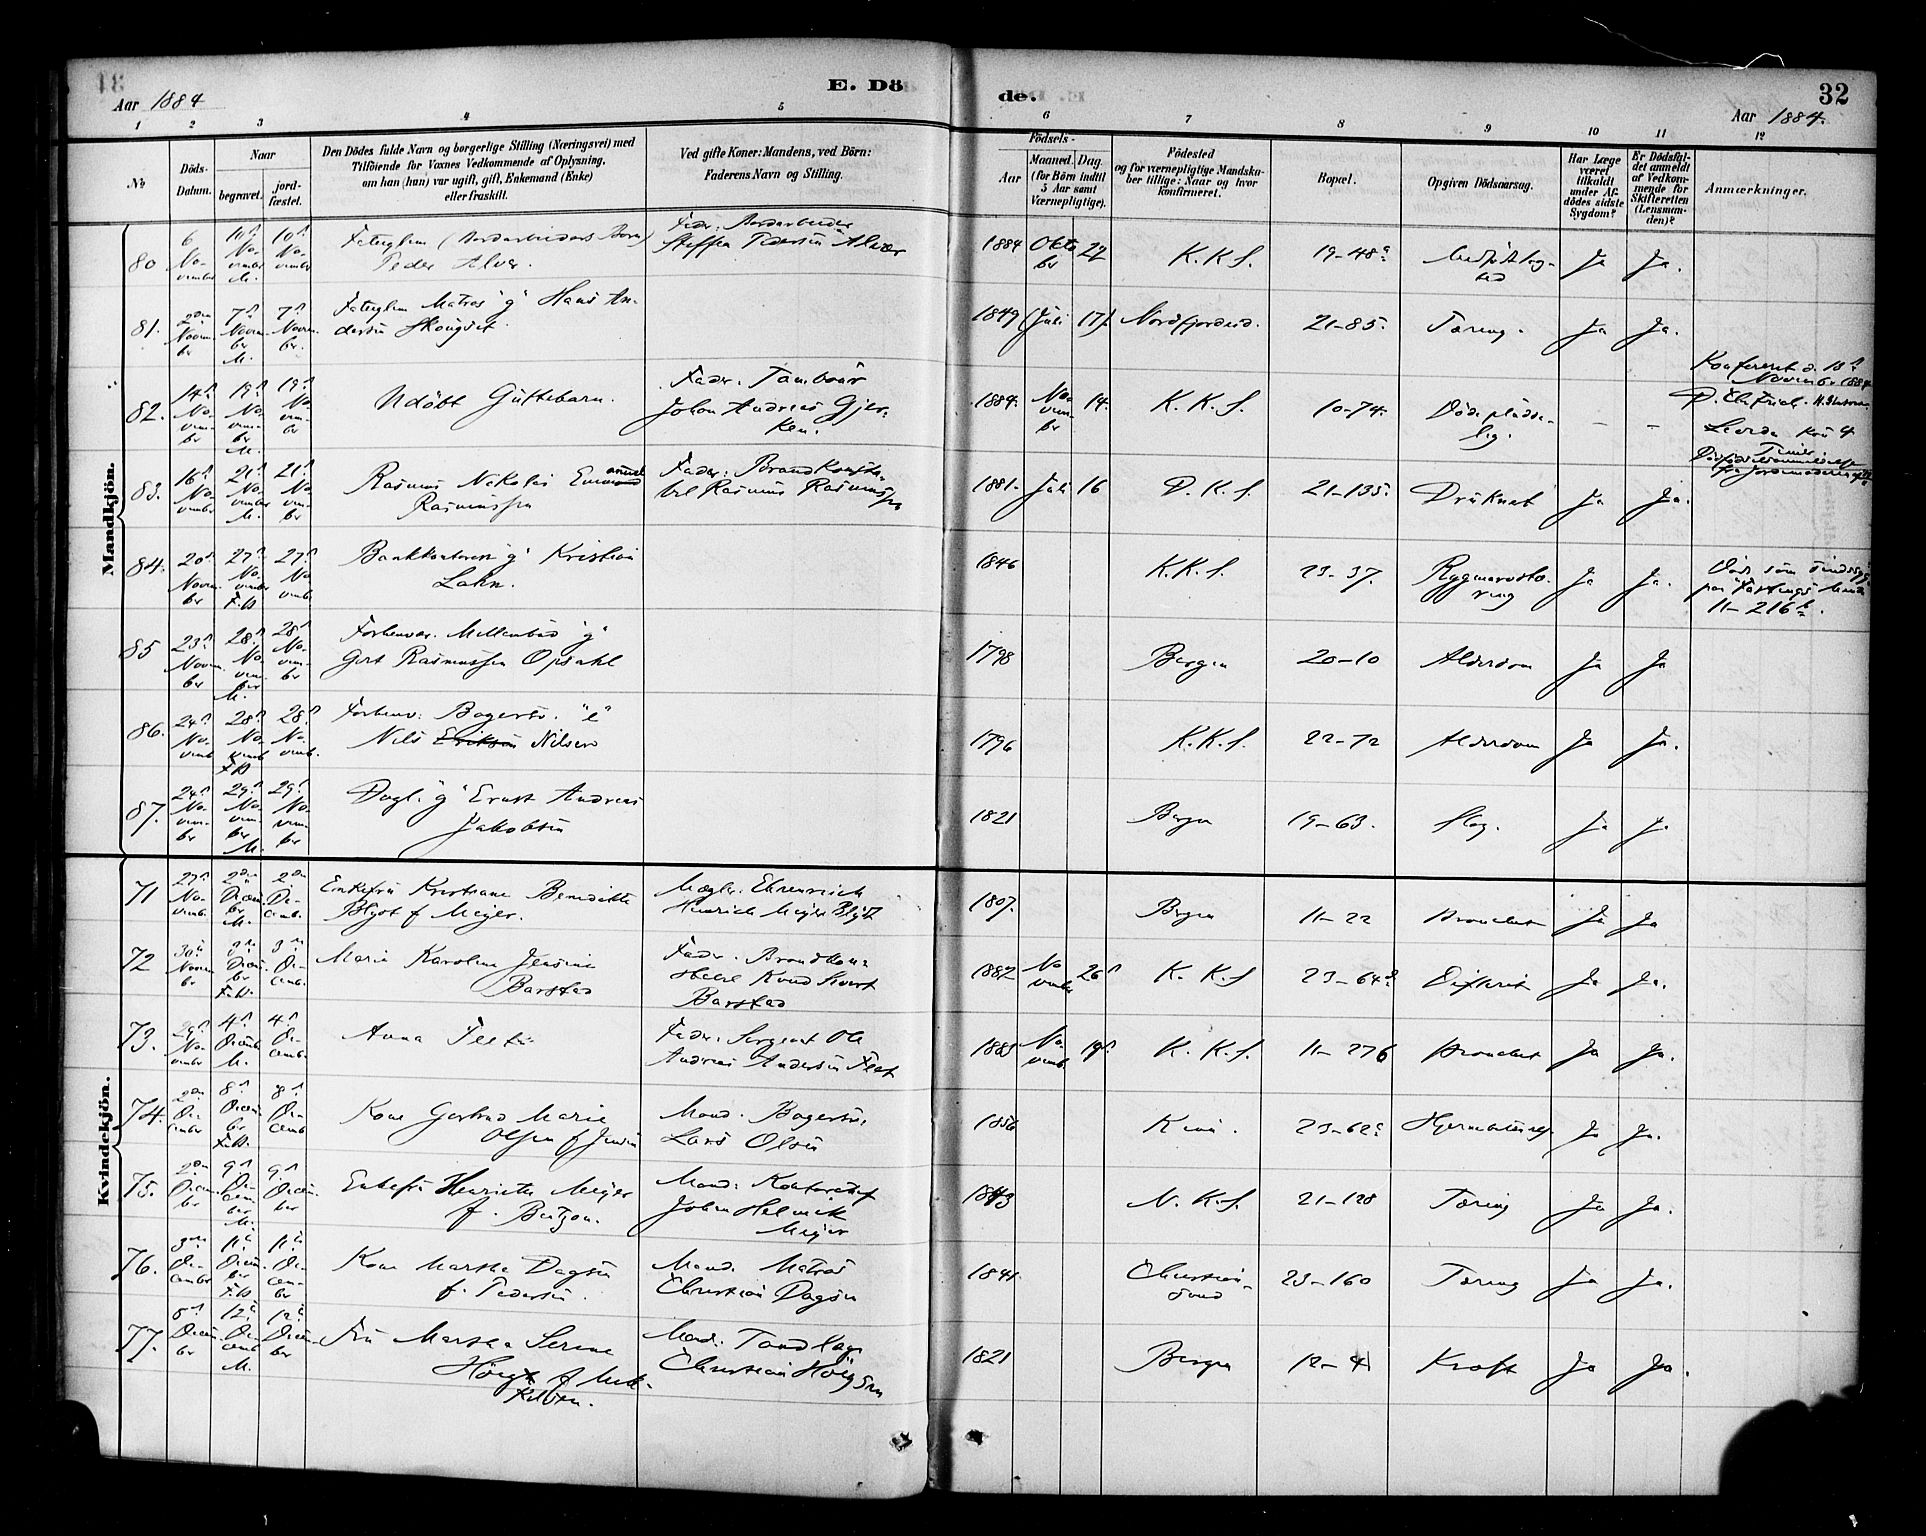 Aar 1884
E. Dö
de.
32
Aar 1884.
1 2 3 4 5 6 7 8 9 10 11 12
No
Döds-
Datum.
Naar
begravet.
jord-
fæstet.
Den Dödes fulde Navn og borgerlige Stilling (Næringsvei) med
Tilföiende for Voxnes Vedkommende af Oplysning,
om han (hun) var ugift, gift, Enkemand (Enke)
eller fraskilt.
Ved gifte Koner: Mandens, ved Börn:
Faderens Navn og Stilling.
Födsels-
Aar
Maaned. Dag.
(for Börn indtil
5 Aar samt
Værnepligtige).
Födested
og for værnepligtige Mandska-
ber tillige: Naar og hvor
konfirmeret.
Bopæl.
Opgiven Dödsaarsag.
Har Læge
været
tilkaldt
under Af-
dödes sidste
Sygdom?
Er Dödsfal-
det anmeldt
af Vedkom-
mende for
Skifteretten
(Lensman-
den)?
Anmærkninger.
Mandkjön.
80
6
No-
vember
10
No-
vember
M.
10
No-
vember
Peder Alver.
Fader:
Steffen Pedersen Alver
1884 Okto
ber 22
K. K. S.
19-48
Ja Ja.
81.
2den
Novem-
ber
7
Novem-
ber
M.
7
Novem-
ber.
Matros "g" Hans An-
dersen
1849 (Juli 17)
Nordfjordeid.
21-85.
Tæring.
Ja Ja.
82.
14
No-
vem-
ber
19
No-
vem-
ber
M.
19
No-
vem-
ber
Udöbt Guttebarn.
Fader: Tambour
Johan Andreas Gjer-
ken.
1884. No-
vem-
ber 14.
K. K. S.
10-74.
Döde pludse-
lig.
– –
November 1884
83.
16
No-
vember
21
No-
vember
M.
21
No-
vem-
ber
Rasmus Nikolai
Rasmussen
Fader: Brandkonsta-
bel Rasmus Rasmussen
1881. Juli 16
D. K. S.
21-135.
Druknet
Ja Ja.
84.
20
Novem-
ber
27
No-
vember
27
No-
vemb
"g" Kristian
Lahn.
1846
K. K. S.
23-37.
Rygmarvstæ-
ring
Ja Ja.
Död som Sindssyg
11-216
85
23
Novem-
ber
28
No-
vem-
ber
M.
28
No-
vem-
ber
Forhenvær. "g"
Gert Rasmussen Opsahl
1798
Bergen
20-10
Alderdom
Ja Ja
86.
24
No-
vemb
28
No-
vemb
28
No-
vemb.
Forhenv. Bagersv. "e"
Nils Eriksen Nilsen
1796
K. K. S.
22-72
Alderdom
Ja Ja.
87.
24
No-
vem-
ber
29
No-
vem-
ber
M.
29
No-
vem-
ber
Dagl. "g" Ernst Andreas
Jakobsen
1821
Bergen
19-63.
Slag.
Ja Ja
Kvindekjön.
71
27
No-
vemb.
2den
Decem-
ber
M.
2den
De-
cemb.
Enkefru Kristiane Benedikte
Blydt f Meyer.
Mægler. Ehrenreich
Henrich Meyer Blydt
1807.
Bergen
11-22
Bronchit
Ja Ja
72
30
Novem-
ber
3
Decem-
ber
3
De-
cemb.
Marie Karoline Jensine
Barstad
Fader. Brandkon-
stabel Knud
Barstad
1882 No
vember 26
K. K. S
23-64
Difterit
Ja Ja.
73.
29
No-
vember
4
December
M.
4
De-
cemb.
Anna
Fader. Sergeant Ole
Andreas Andersen
1883 No-
vemb. 19
K. K. S.
11-276
Bronchit
Ja Ja.
74.
2den
De-
cember
8
Decem-
ber
8
De-
cemb
Kone Gertrud Marie
Olsen f Jensen
Mand. Bagersv.
Lars Olsen
1856
Kinn.
23-62
Ja Ja.
75.
2den
Decem-
ber
9
De-
cem-
ber
M.
9
Decem-
ber
Enkefru Henriette Meyer
f.
Mand. Kontorchef
Johan
Meyer
1843
N. K. S.
21-128
Tæring
Ja Ja.
76.
3die
De-
cember
11
Decem-
ber
11
De-
cem-
ber
Kone Martha Dagsen
f. Pedersen.
Mand. Matros
Christian Dagsen
1841
Christian-
sund
23-160
Tæring
Ja Ja.
77.
5
Decem-
ber
12
De-
cemb
M.
12
Decem-
ber
Fru Martha Serine
f
Mand. Tandlæge
Christian
1821
Bergen
12-4
Kræft
Ja Ja.